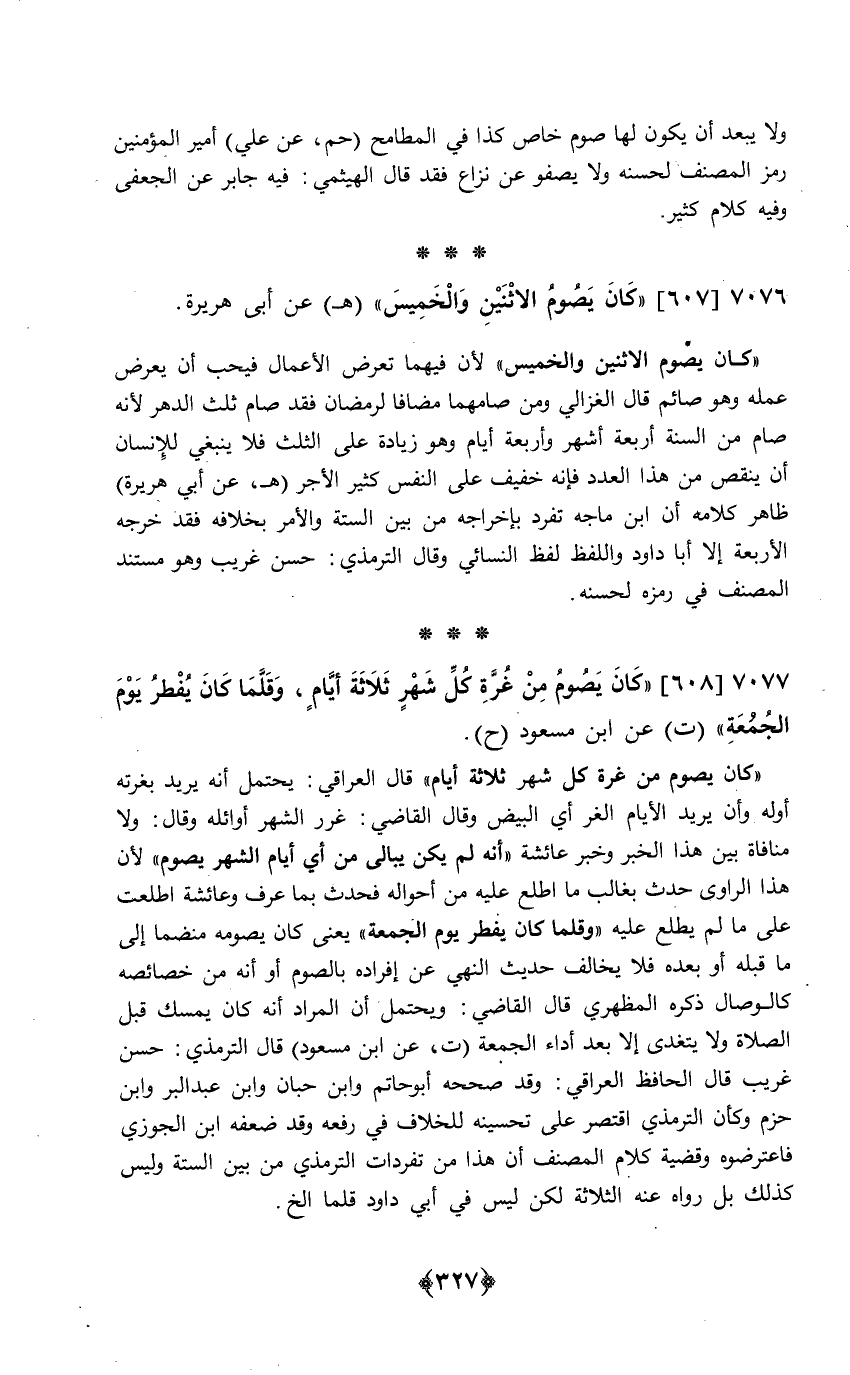 ولا يبعد أن يكون لها صوم خاص كذا في المطامح (حم، عن علي) أمير المؤمنين
رمز المصنف لحسنه ولا يصفو عن نزاع فقد قال الهيثمي: فيه جابر عن الجعفى
وفيه كلام كثير.
* * *
٧٠٧٦ [٦٠٧] «كَانَ يَصُومُ الاثْنَيْنِ وَالْخَمِيسَ» (هـ) عن أبى هريرة.
«كان يصوم الاثنين والخميس» لأن فيهما تعرض الأعمال فيحب أن يعرض
عمله وهو صائم قال الغزالي ومن صامهما مضافا لرمضان فقد صام ثلث الدهر لأنه
صام من السنة أربعة أشهر وأربعة أيام وهو زيادة على الثلث فلا ينبغي للإنسان
أن ينقص من هذا العدد فإنه خفيف على النفس كثير الأجر (هـ، عن أبي هريرة)
ظاهر كلامه أن ابن ماجه تفرد بإخراجه من بين الستة والأمر بخلافه فقد خرجه
الأربعة إلا أبا داود واللفظ لفظ النسائي وقال الترمذي: حسن غريب وهو مستند
المصنف في رمزه لحسنه.
* * *
٧٠٧٧ [٦٠٨] «كَانَ يَصُومُ مِنْ غُرَّةِ كُلِّ شَهْرٍ ثَلَاثَةَ أيَّامٍ، وَقَلَّمَا كَانَ يُفْطرُ يَوْمَ
الجُمُعَةِ» (ت) عن ابن مسعود (ح).
«كان يصوم من غرة كل شهر ثلاثة أيام» قال العراقي: يحتمل أنه يريد بغرته
أوله وأن يريد الأيام الغر أي البيض وقال القاضي: غرر الشهر أوائله وقال: ولا
منافاة بين هذا الخبر وخبر عائشة «أنه لم يكن يبالى من أي أيام الشهر يصوم» لأن
هذا الراوى حدث بغالب ما اطلع عليه من أحواله فحدث بما عرف وعائشة اطلعت
على ما لم يطلع عليه «وقلما كان يفطر يوم الجمعة» يعنى كان يصومه منضما إلى
ما قبله أو بعده فلا يخالف حديث النهي عن إفراده بالصوم أو أنه من خصائصه
كالوصال ذكره المظهري قال القاضي: ويحتمل أن المراد أنه كان يمسك قبل
الصلاة ولا يتغدى إلا بعد أداء الجمعة (ت، عن ابن مسعود) قال الترمذي: حسن
غريب قال الحافظ العراقي: وقد صححه أبوحاتم وابن حبان وابن عبدالبر وابن
حزم وكأن الترمذي اقتصر على تحسينه للخلاف في رفعه وقد ضعفه ابن الجوزي
فاعترضوه وقضية كلام المصنف أن هذا من تفردات الترمذي من بين الستة وليس
كذلك بل رواه عنه الثلاثة لكن ليس في أبي داود قلما الخ.
﴿٣٢٧﴾